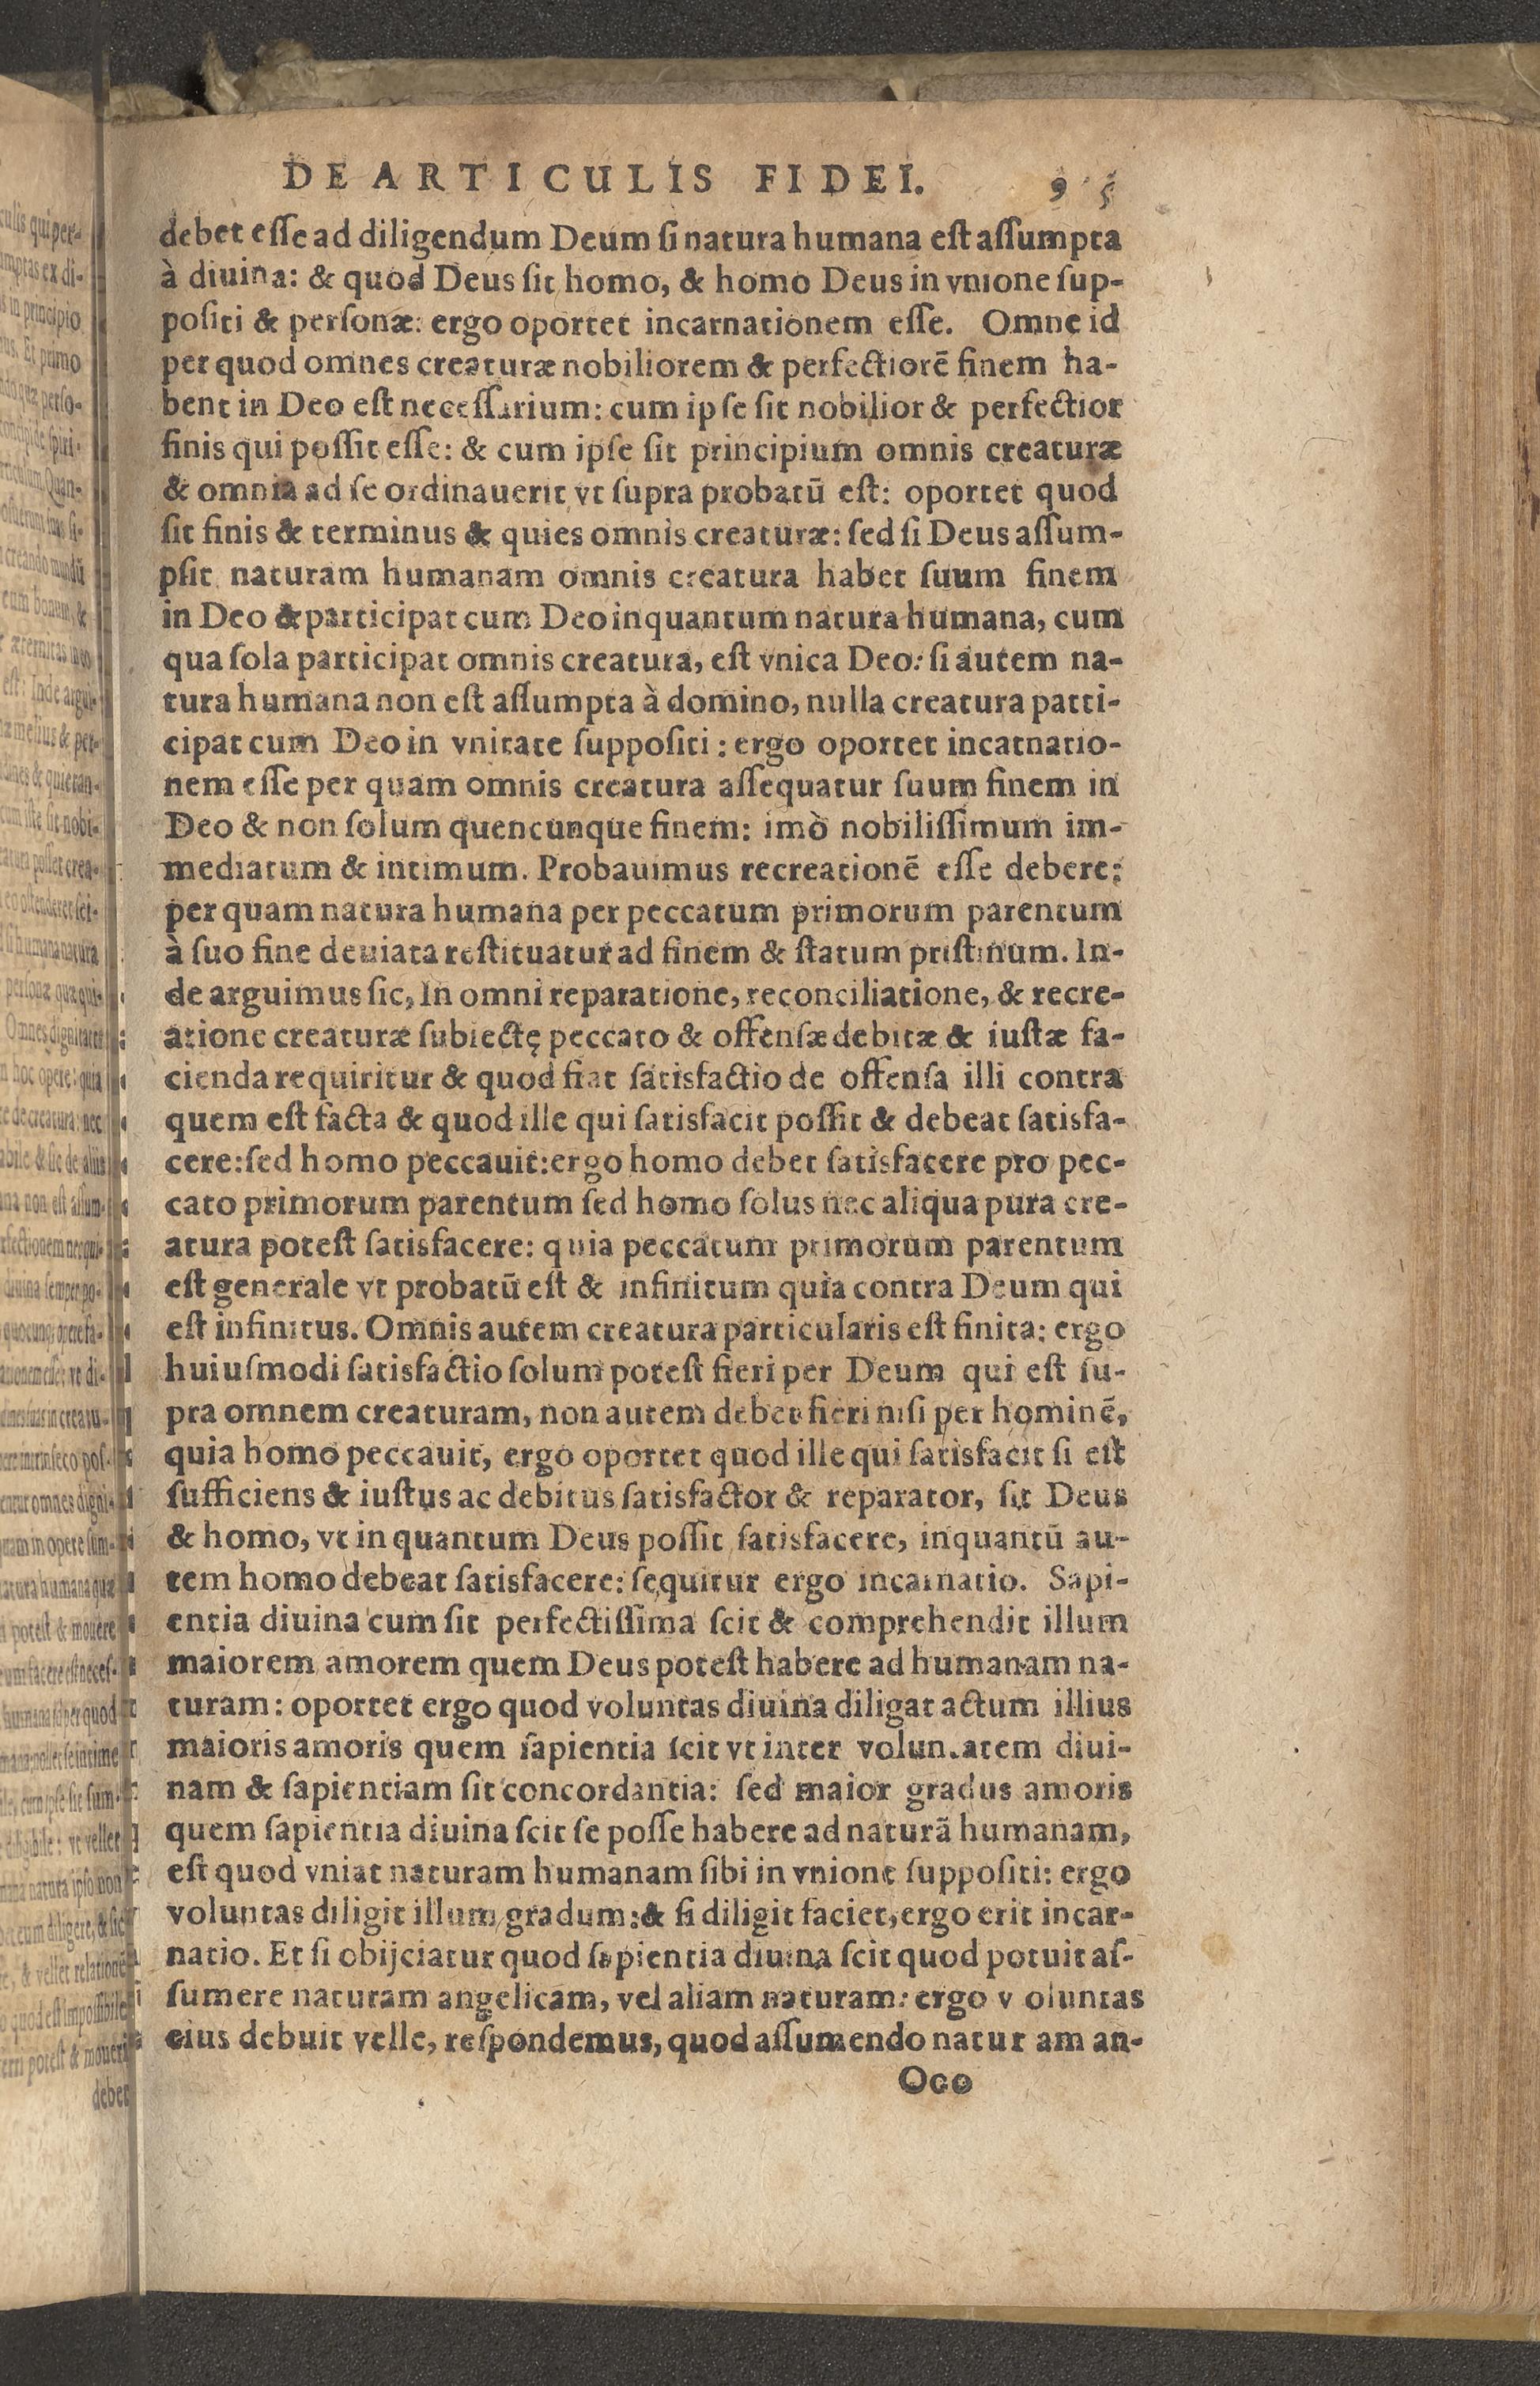 DE ARTICULIS FIDEI. 95
debet esse ad diligendum Deum si natura humana est assumpta
à diuina: & quod Deus sit homo, & homo Deus in vnione sup-
positi & personæ: ergo oportet incarnationem esse. Omne id
per quod omnes creaturæ nobiliorem & perfectiorē finem ha-
bent in Deo est necessarium: cum ipse sit nobilior & perfectior
finis qui possit esse: & cum ipse sit principium omnis creaturæ
& omnia ad se ordinauerit vt supra probatū est: oportet quod
sit finis & terminus & quies omnis creaturæ: sed si Deus assum-
psit naturam humanam omnis creatura habet suum finem
in Deo & participat cum Deo inquantum natura humana, cum
qua sola participat omnis creatura, est vnica Deo: si autem na-
tura humana non est assumpta à domino, nulla creatura parti-
cipat cum Deo in vnitate suppositi: ergo oportet incatnatio-
nem esse per quam omnis creatura assequatur suum finem in
Deo & non solum quencunque finem: imò nobilissimum im-
mediatum & intimum. Probauimus recreationē esse debere:
per quam natura humana per peccatum primorum parentum
à suo fine deuiata restituatur ad finem & statum pristinum. In-
de arguimus sic, In omni reparatione, reconciliatione, & recre-
atione creaturæ subiectę peccato & offensæ debitæ & iustæ fa-
cienda requiritur & quod fiat satisfactio de offensa illi contra
quem est facta & quod ille qui satisfacit possit & debeat satisfa-
cere: sed homo peccauit: ergo homo debet satisfacere pro pec-
cato primorum parentum sed homo solus nec aliqua pura cre-
atura potest satisfacere: quia peccatum primorum parentum
est generale vt probatū est & infinitum quia contra Deum qui
est infinitus. Omnis autem creatura particularis est finita: ergo
huiusmodi satisfactio solum potest fieri per Deum qui est su-
pra omnem creaturam, non autem debet fieri nisi per hominē,
quia homo peccauit, ergo oportet quod ille qui satisfacit si est
sufficiens & iustus ac debitus satisfactor & reparator, sit Deus
& homo, vt in quantum Deus possit satisfacere, inquantū au-
tem homo debeat satisfacere: sequitur ergo incarnatio. Sapi-
entia diuina cum sit perfectissima scit & comprehendit illum
maiorem amorem quem Deus potest habere ad humanam na-
turam: oportet ergo quod voluntas diuina diligat actum illius
maioris amoris quem sapientia scit vt inter voluntatem diui-
nam & sapientiam sit concordantia: sed maior gradus amoris
quem sapientia diuina scit se posse habere ad naturā humanam,
est quod vniat naturam humanam sibi in vnione suppositi: ergo
voluntas diligit illum gradum: & si diligit faciet, ergo erit incar-
natio. Et si obijciatur quod sapientia diuina scit quod potuit as-
sumere naturam angelicam, vel aliam naturam: ergo v oluntas
eius debuit velle, respondemus, quod assumendo natur am an-
Ooo